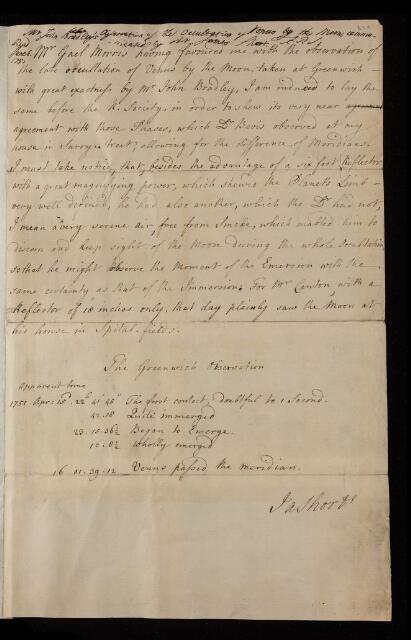 Mr John Bradley's Observation of the Occultation of Venus by the Moon, communi-
cated by Mr James Short F.R.S.
Mr Gael Morris having favoured me with the observation of
the late occultation of Venus by the Moon, taken at Greenwich
with great exactness by Mr John Bradley, I am induced to lay the
same before the R. Society, in order to shew its very near agreement
agreement with those Phases, which Dr Bevis observed at my
house in Surry-street; allowing for the difference of Meridians.
I must take notice, that, besides the advantage of a six foot Reflector
with a great magnifying power, which shewed the Planets Limb
very well defined, he had also another, which the Dr had not,
I mean a very serene air, free from Smoke, which enabled him to
discern and keep sight of the Moon during the whole Occultation
so that he might observe the Moment of the Emersion with the
same certainty as that of the Immersion. For Mr Canton, with a
Reflector of 18 inches only, that day plainly saw the Moon at
his house in Spital-fields.
The Greenwich Observation
Apparent time
1751 Apr: 15d. 22h 41' 48" The first contact, Doubtful to 1 Second.
42.18 Quite immerged
23. 15. 36½ Began to Emerge.
16. 8½ Wholly emerged
16 . 01. 39. 12 Venus passed the meridian.
Ja Short